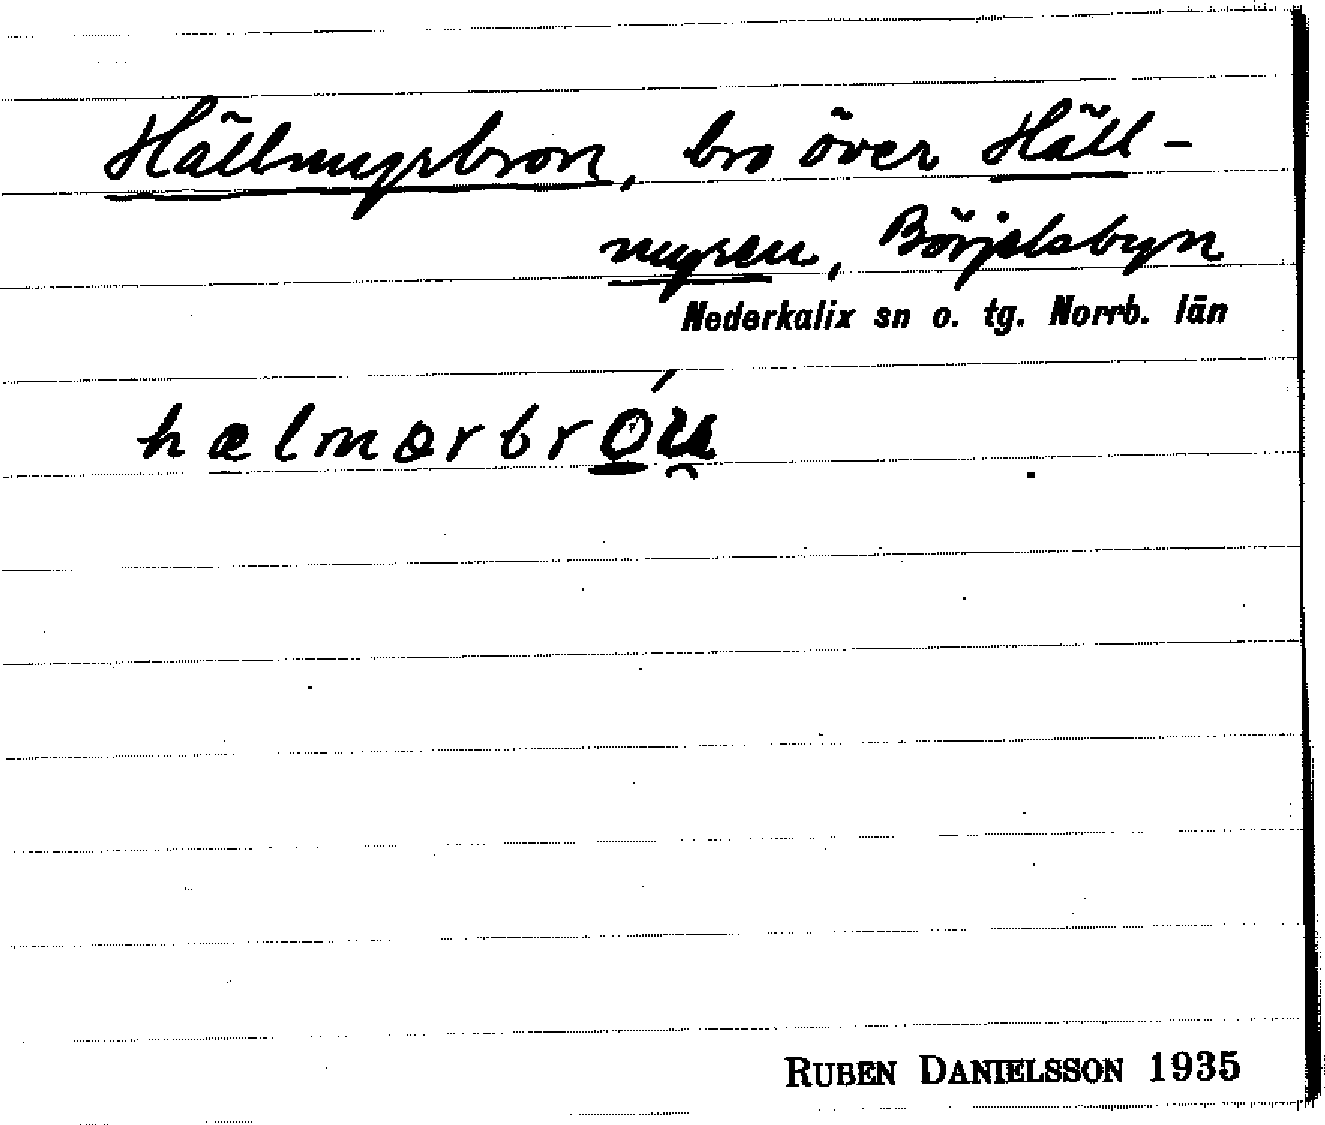 Hällmyrbron, bro över Häll-
myren, Börjelsbyn
Nederkalix sn o. tg. Norrb. län
hælmərbróu̯
RUBEN DANIELSSON 1935